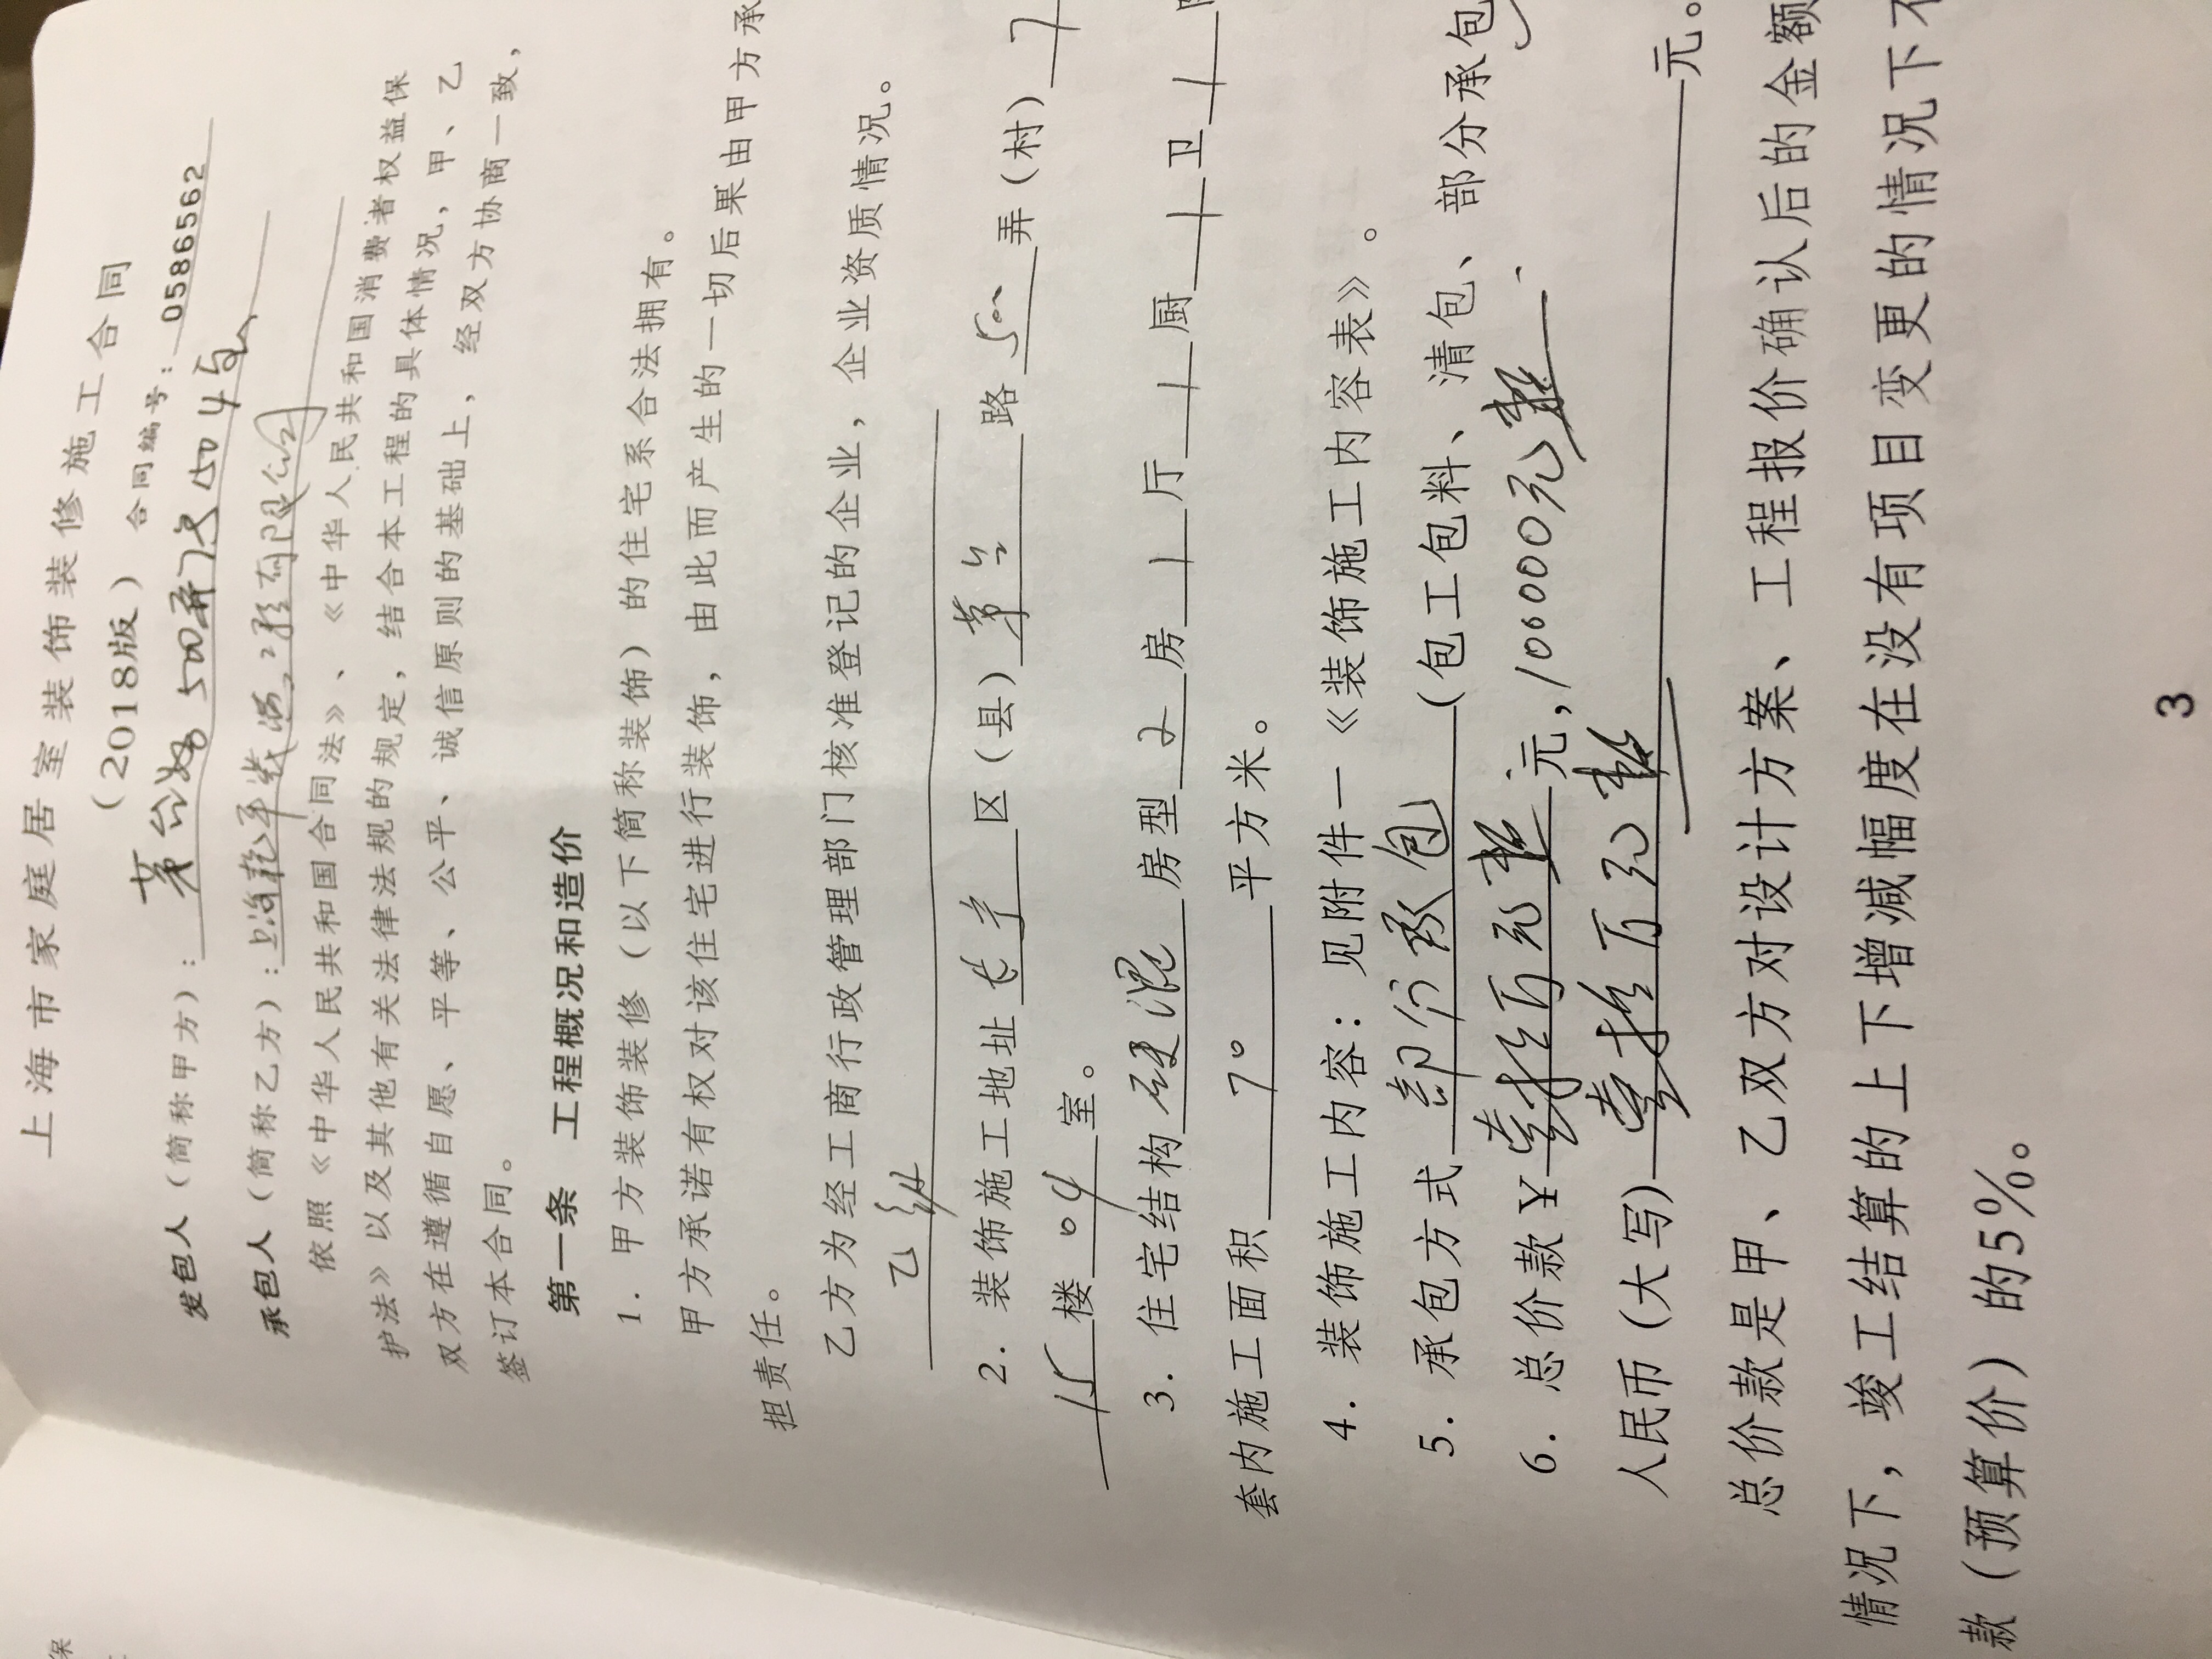 上海市家庭居室装饰装修施工合同
（2018版） 合同编号：0586562
发包人（简称甲方）：茅台路500弄7号1504室
承包人（简称乙方）：上海 装潢工程有限公司
依照《中华人民共和国合同法》、《中华人民共和国消费者权益保
护法》以及其他有关法律法规的规定，结合本工程的具体情况，甲、乙
双方在遵循自愿、平等、公平、诚信原则的基础上，经双方协商一致，
签订本合同。
第一条 工程概况和造价
1. 甲方装饰装修（以下简称装饰）的住宅系合法拥有。
甲方承诺有权对该住宅进行装饰，由此而产生的一切后果由甲方承
担责任。
乙方为经工商行政管理部门核准登记的企业，企业资质情况。
乙级
2. 装饰施工地址长宁区（县）茅台路500弄（村）7
15楼04室。
3. 住宅结构砖混房型2房1厅1厨1卫1
套内施工面积70平方米。
4. 装饰施工内容：见附件一《装饰施工内容表》。
5. 承包方式部分承包（包工包料、清包、部分承包
6. 总价款￥壹拾万元整元，100000元整
人民币（大写）壹拾万元整元。
总价款是甲、乙双方对设计方案、工程报价确认后的金额
情况下，竣工结算的上下增减幅度在没有项目变更的情况下不
款（预算价）的5%。
3
保